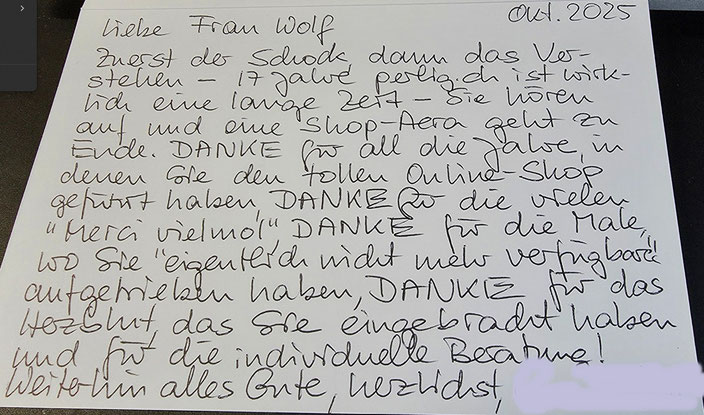 Okt. 2025
Liebe Frau Wolf
Zuerst der Schock, dann das Ver-
stehen – 17 Jahre perlig.ch ist wirk-
lich eine lange Zeit – Sie hören
auf und eine Shop-Aera geht zu
Ende. DANKE für all die Jahre, in
denen Sie den tollen Online-Shop
geführt haben, DANKE für die vielen
"Merci vielmol", DANKE für die Male,
wo Sie "eigentlich nicht mehr verfügbare"
aufgetrieben haben, DANKE für das
Herzblut, das Sie eingebracht haben
und für die individuelle Beratung!
Weiterhin alles Gute, herzlichst,